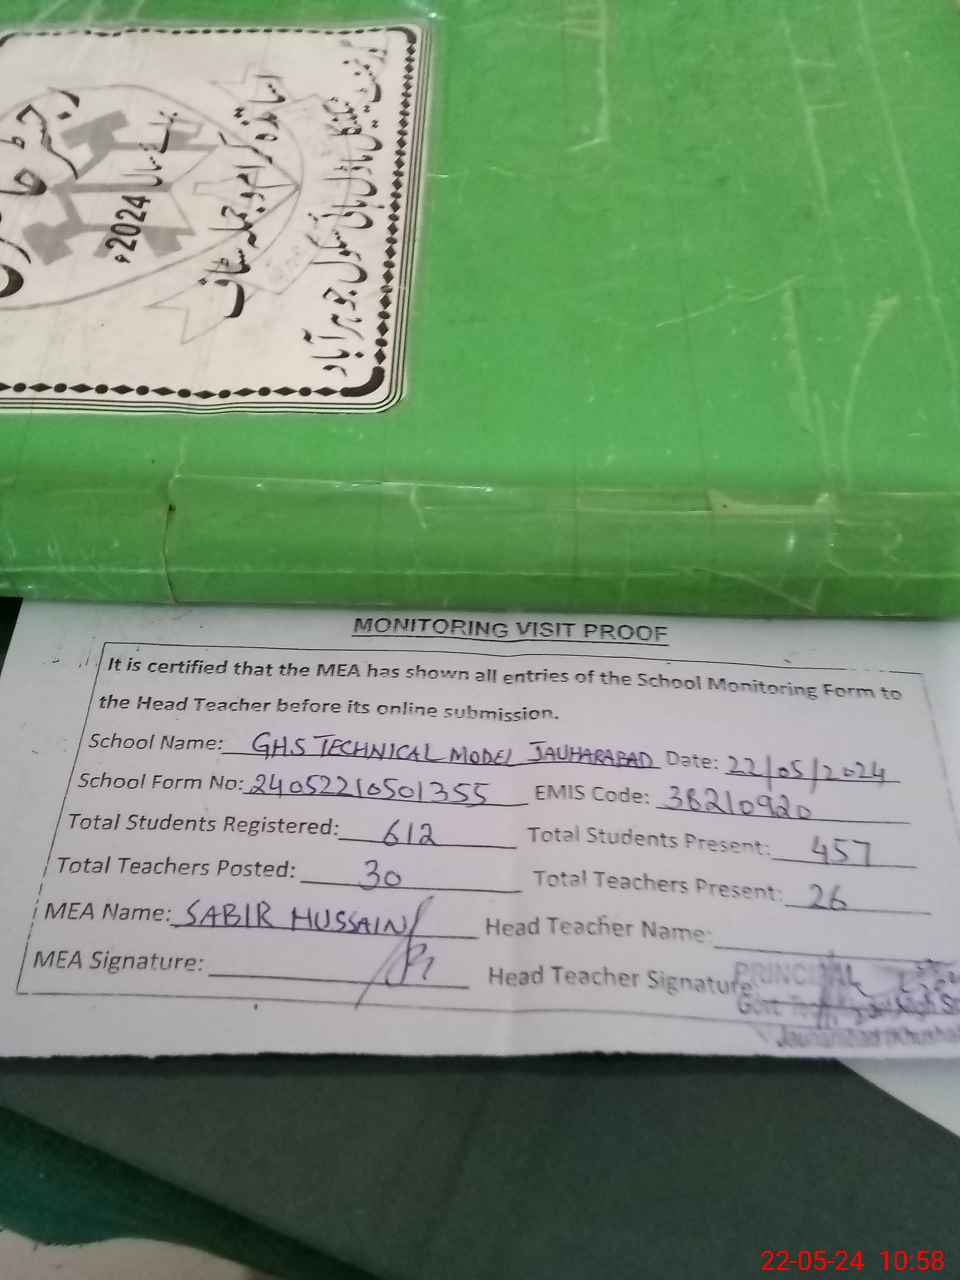 گورنمنٹ ٹیکنیکل ماڈل ہائی سکول جوہرآباد
اساتذہ کرام و جملہ سٹاف
برائے سال 2024ء
رجسٹر
MONITORING VISIT PROOF
It is certified that the MEA has shown all entries of the School Monitoring Form to
the Head Teacher before its online submission.
School Name: GHS TECHNICAL MODEL JAUHARABAD Date: 22/05/2024
School Form No: 24052210501355 EMIS Code: 38210920
Total Students Registered: 612 Total Students Present: 457
Total Teachers Posted: 30 Total Teachers Present: 26
MEA Name: SABIR HUSSAIN Head Teacher Name:
MEA Signature: Head Teacher Signature
PRINCIPAL
Govt
Jauharabad
22-05-24 10:58